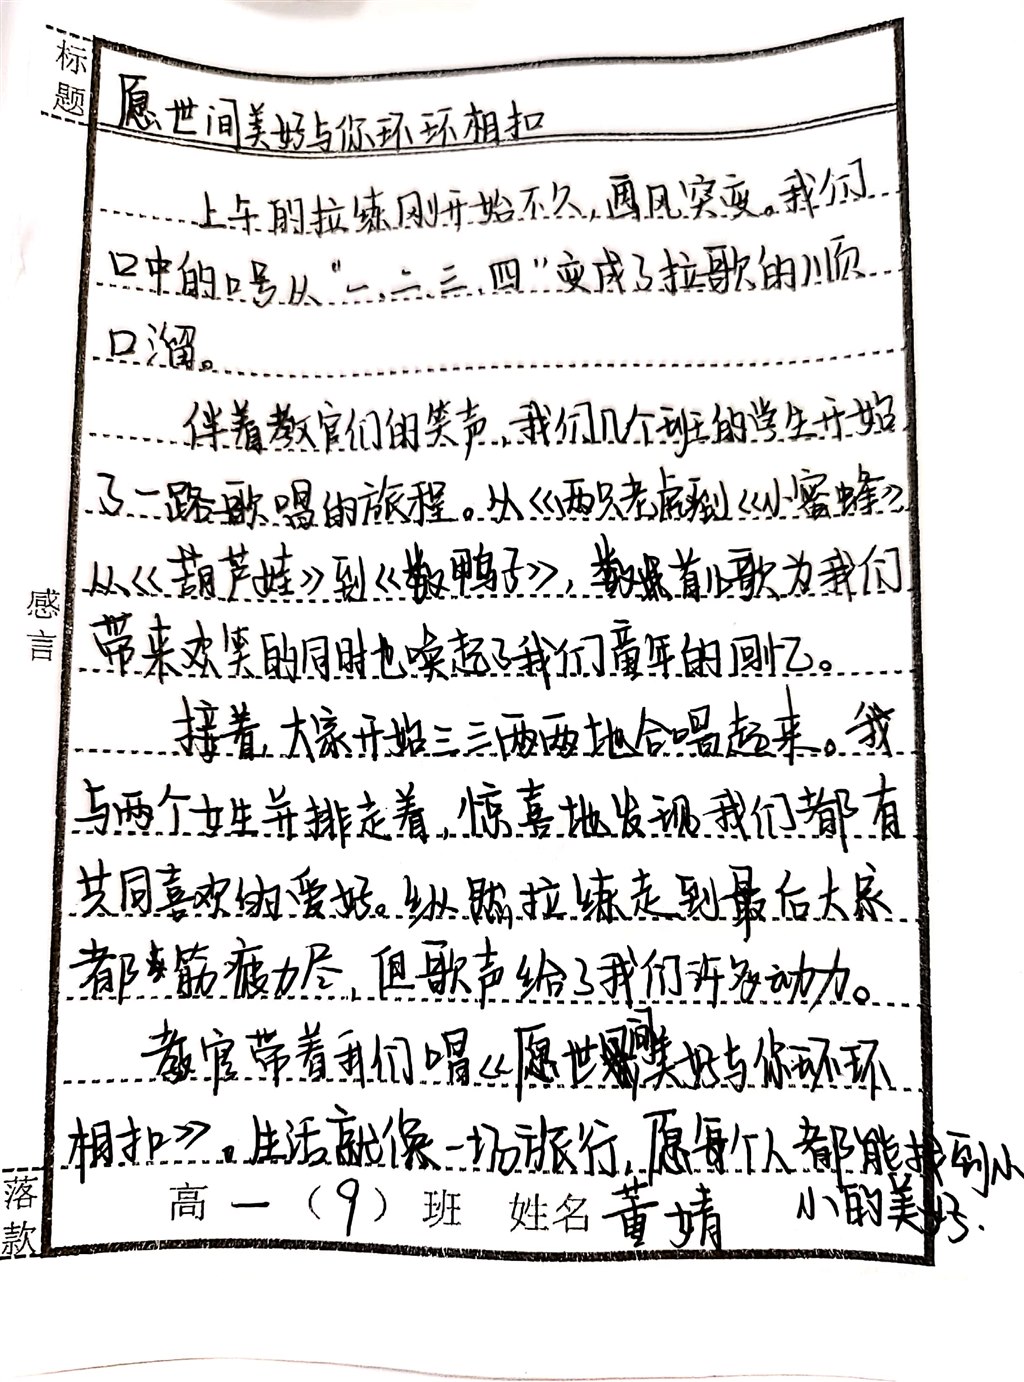 标题
愿世间美好与你环环相扣
上午的拉练刚开始不久,画风突变。我们
口中的口号从“一、二、三、四”变成了拉歌的顺
口溜。
伴着教官们的笑声,我们几个班的学生开始
了一路歌唱的旅程。从《两只老虎》到《小蜜蜂》
从《葫芦娃》到《数鸭子》,数首儿歌为我们
带来欢笑的同时也唤起了我们童年的回忆。
接着,大家开始三三两两地合唱起来。我
与两个女生并排走着,惊喜地发现我们都有
共同喜欢的爱好。纵然拉练走到最后大家
都筋疲力尽,但歌声给了我们许多动力。
教官带着我们唱《愿世间美好与你环环
相扣》。生活就像一场旅行,愿每个人都能找到小
小的美好.
感言
落款
高一(9)班 姓名 董婧